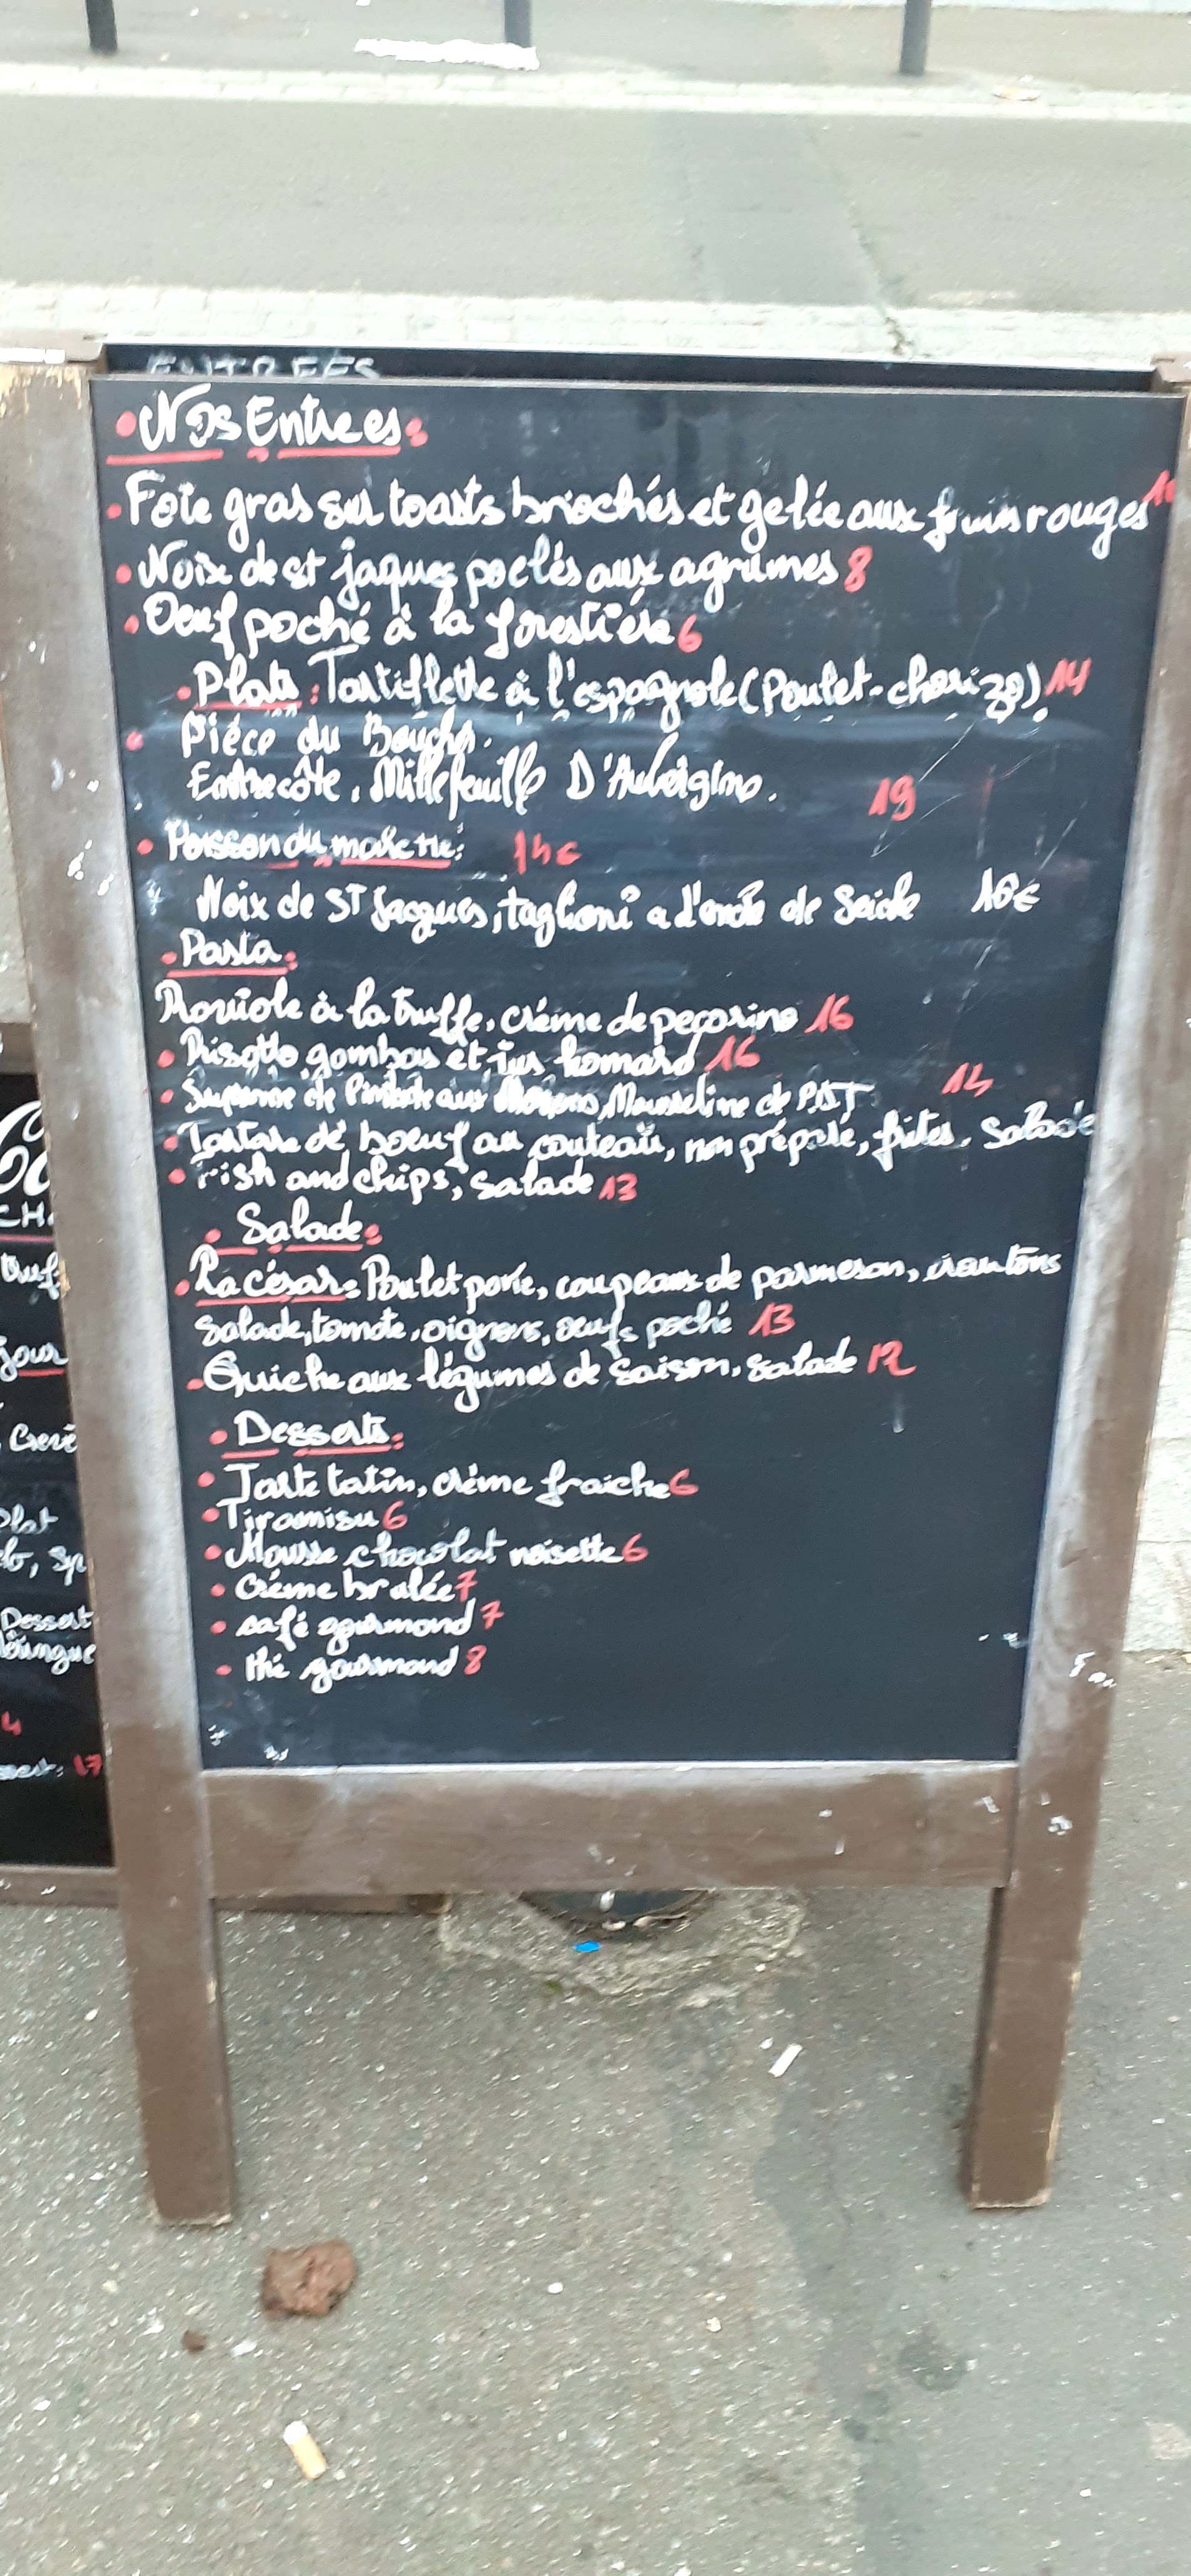 ENTREES
Nos Entrees:
Foie gras sur toasts briochés et gelée aux fruis rouges
Noix de st jaques poelés aux agrumes 8
Oeuf poché à la forestière 6
Plats: Tartiflette à l'espagnole (Poulet-chorizo). 14
Piéce du Boucher.
Entrecôte, Millefeuille D'Auvergine. 19
Poisson du marché: 14€
Noix de ST Jacques, taglioni a l'encre de Seiche 16€
Pasta:
Raviole à la truffe, créme de pecorino 16
Risotto, gambas et jus homard 16
Supreme de Pintade aux, Mousseline de PDT 14
Tartare de boeuf au couteau, non préparé, frites, Salade
Fish and chips, salade 13
Salade:
La césar: Poulet pané, coupeaux de parmesan, croutons
Salade, tomate, oignons, oeufs poché 13
Quiche aux légumes de saison, salade 12
Desserts:
Tarte tatin, crème fraiche 6
Tiramisu 6
Mousse chocolat noisette 6
Créme brulée 7
café gourmond 7
thé gourmond 8
CH
jour
Plat
Dessert
4
17